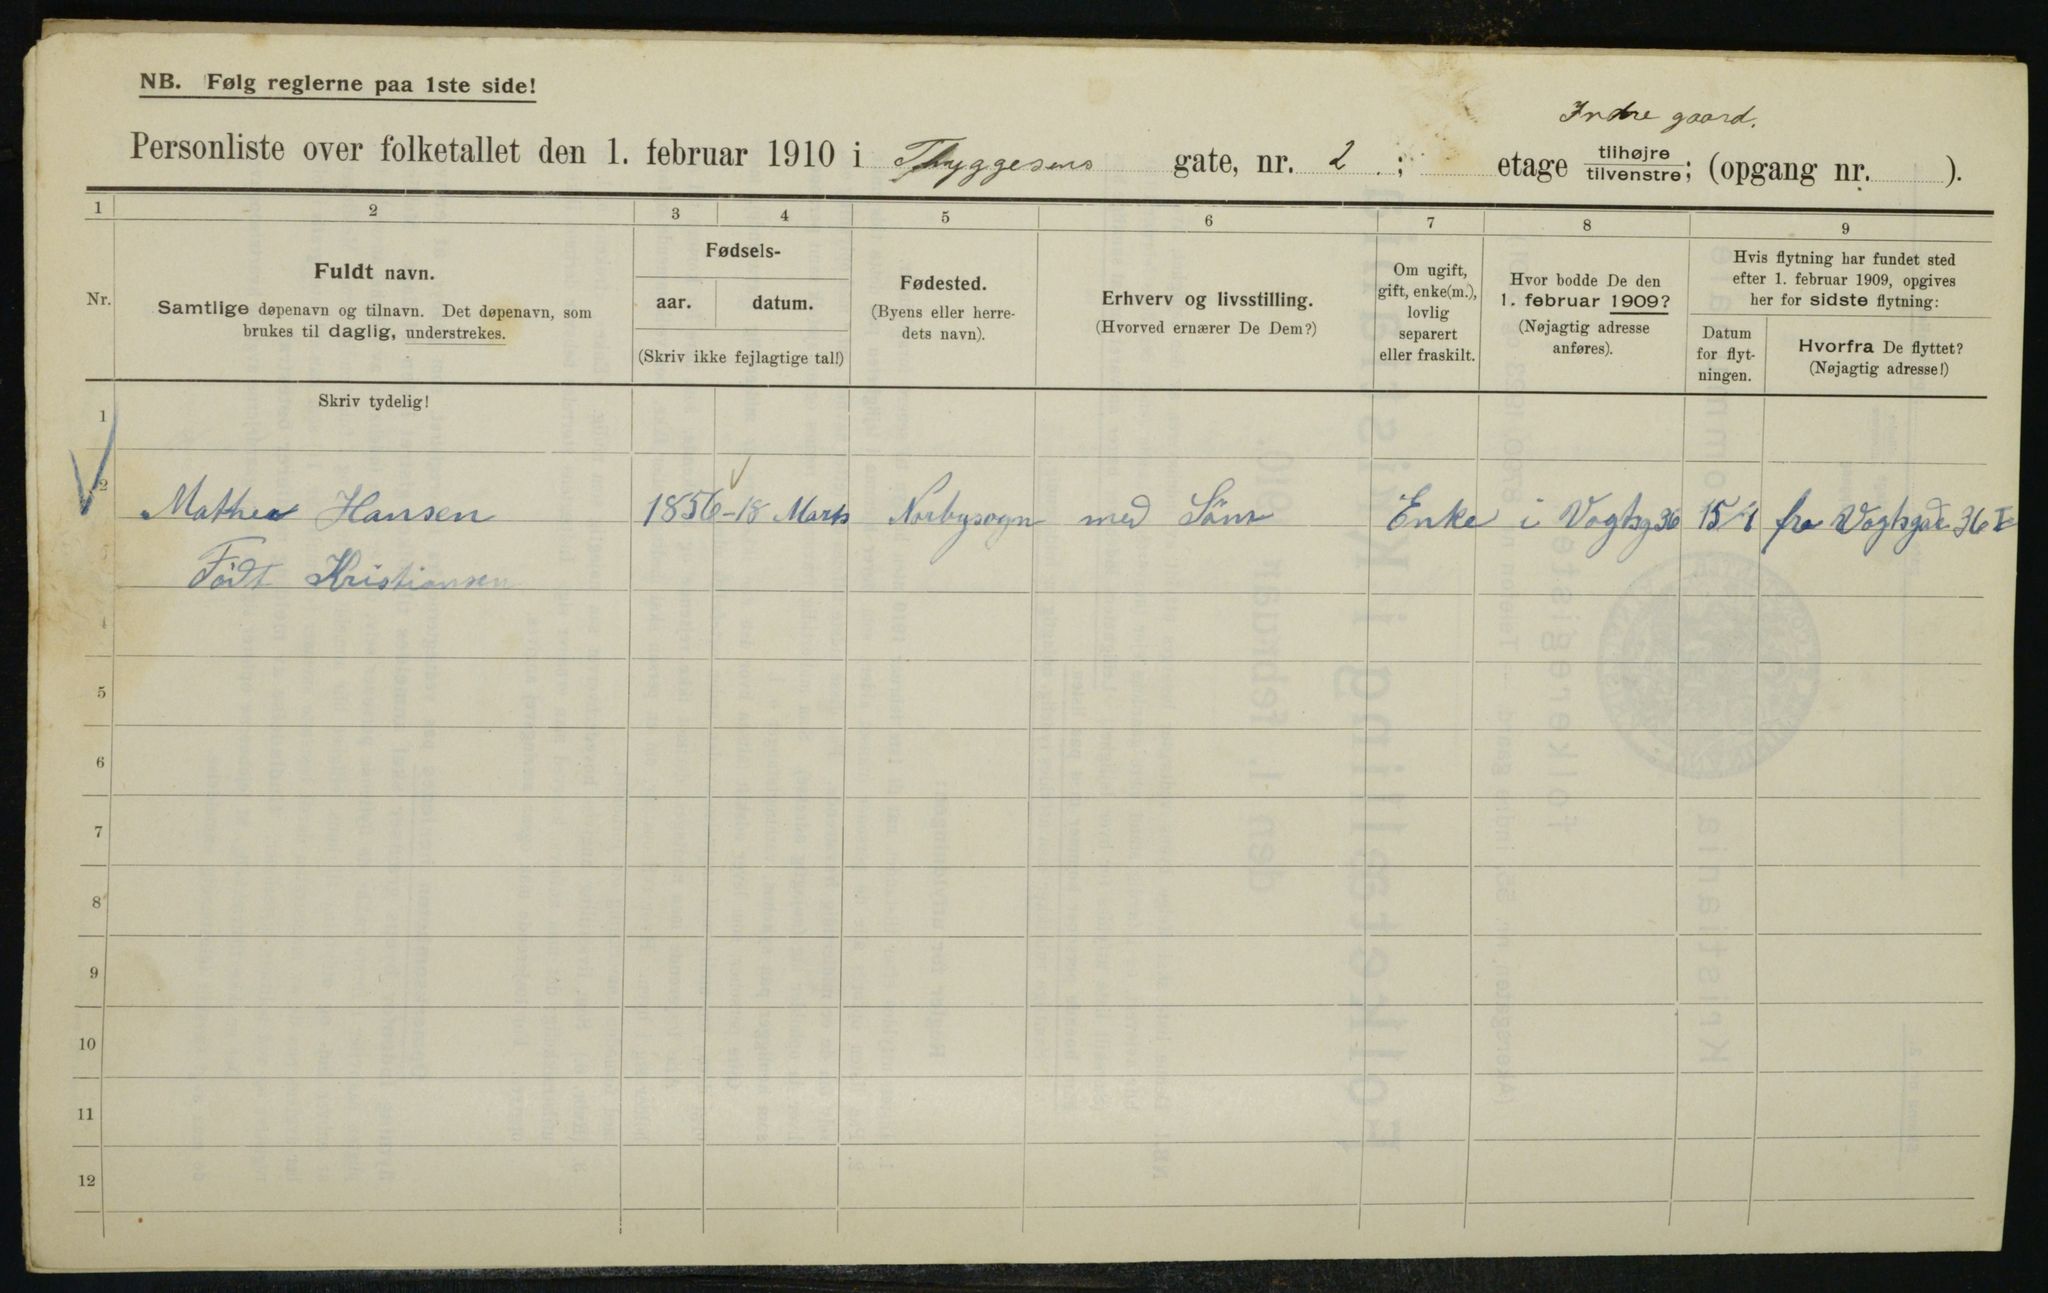 NB. Følg reglerne paa 1ste side!
Indre gaard.
Personliste over folketallet den 1. februar 1910 i Thyggesens gate, nr. 2 ; etage tilhøjre/tilvenstre; (opgang nr. ).
1 2 3 4 5 6 7 8 9
Nr.
Fuldt navn.
Samtlige døpenavn og tilnavn. Det døpenavn, som
brukes til daglig, understrekes.
Fødsels-
aar. datum.
(Skriv ikke fejlagtige tal!)
Fødested.
(Byens eller herre-
dets navn).
Erhverv og livsstilling.
(Hvorved ernærer De Dem?)
Om ugift,
gift, enke(m.),
lovlig
separert
eller fraskilt.
Hvor bodde De den
1. februar 1909?
(Nøjagtig adresse
anføres).
Hvis flytning har fundet sted
efter 1. februar 1909, opgives
her for sidste flytning:
Datum
for flyt-
ningen.
Hvorfra De flyttet?
(Nøjagtig adresse!)
Skriv tydelig!
1
2
Mathea Hansen 1856 - 18 Marts Norbysogn med Söm Enke i Vogtsg 36 15/1 fra Vogtsgade 36 I
Födt Kristiansen
4
5
6
7
8
9
10
11
12